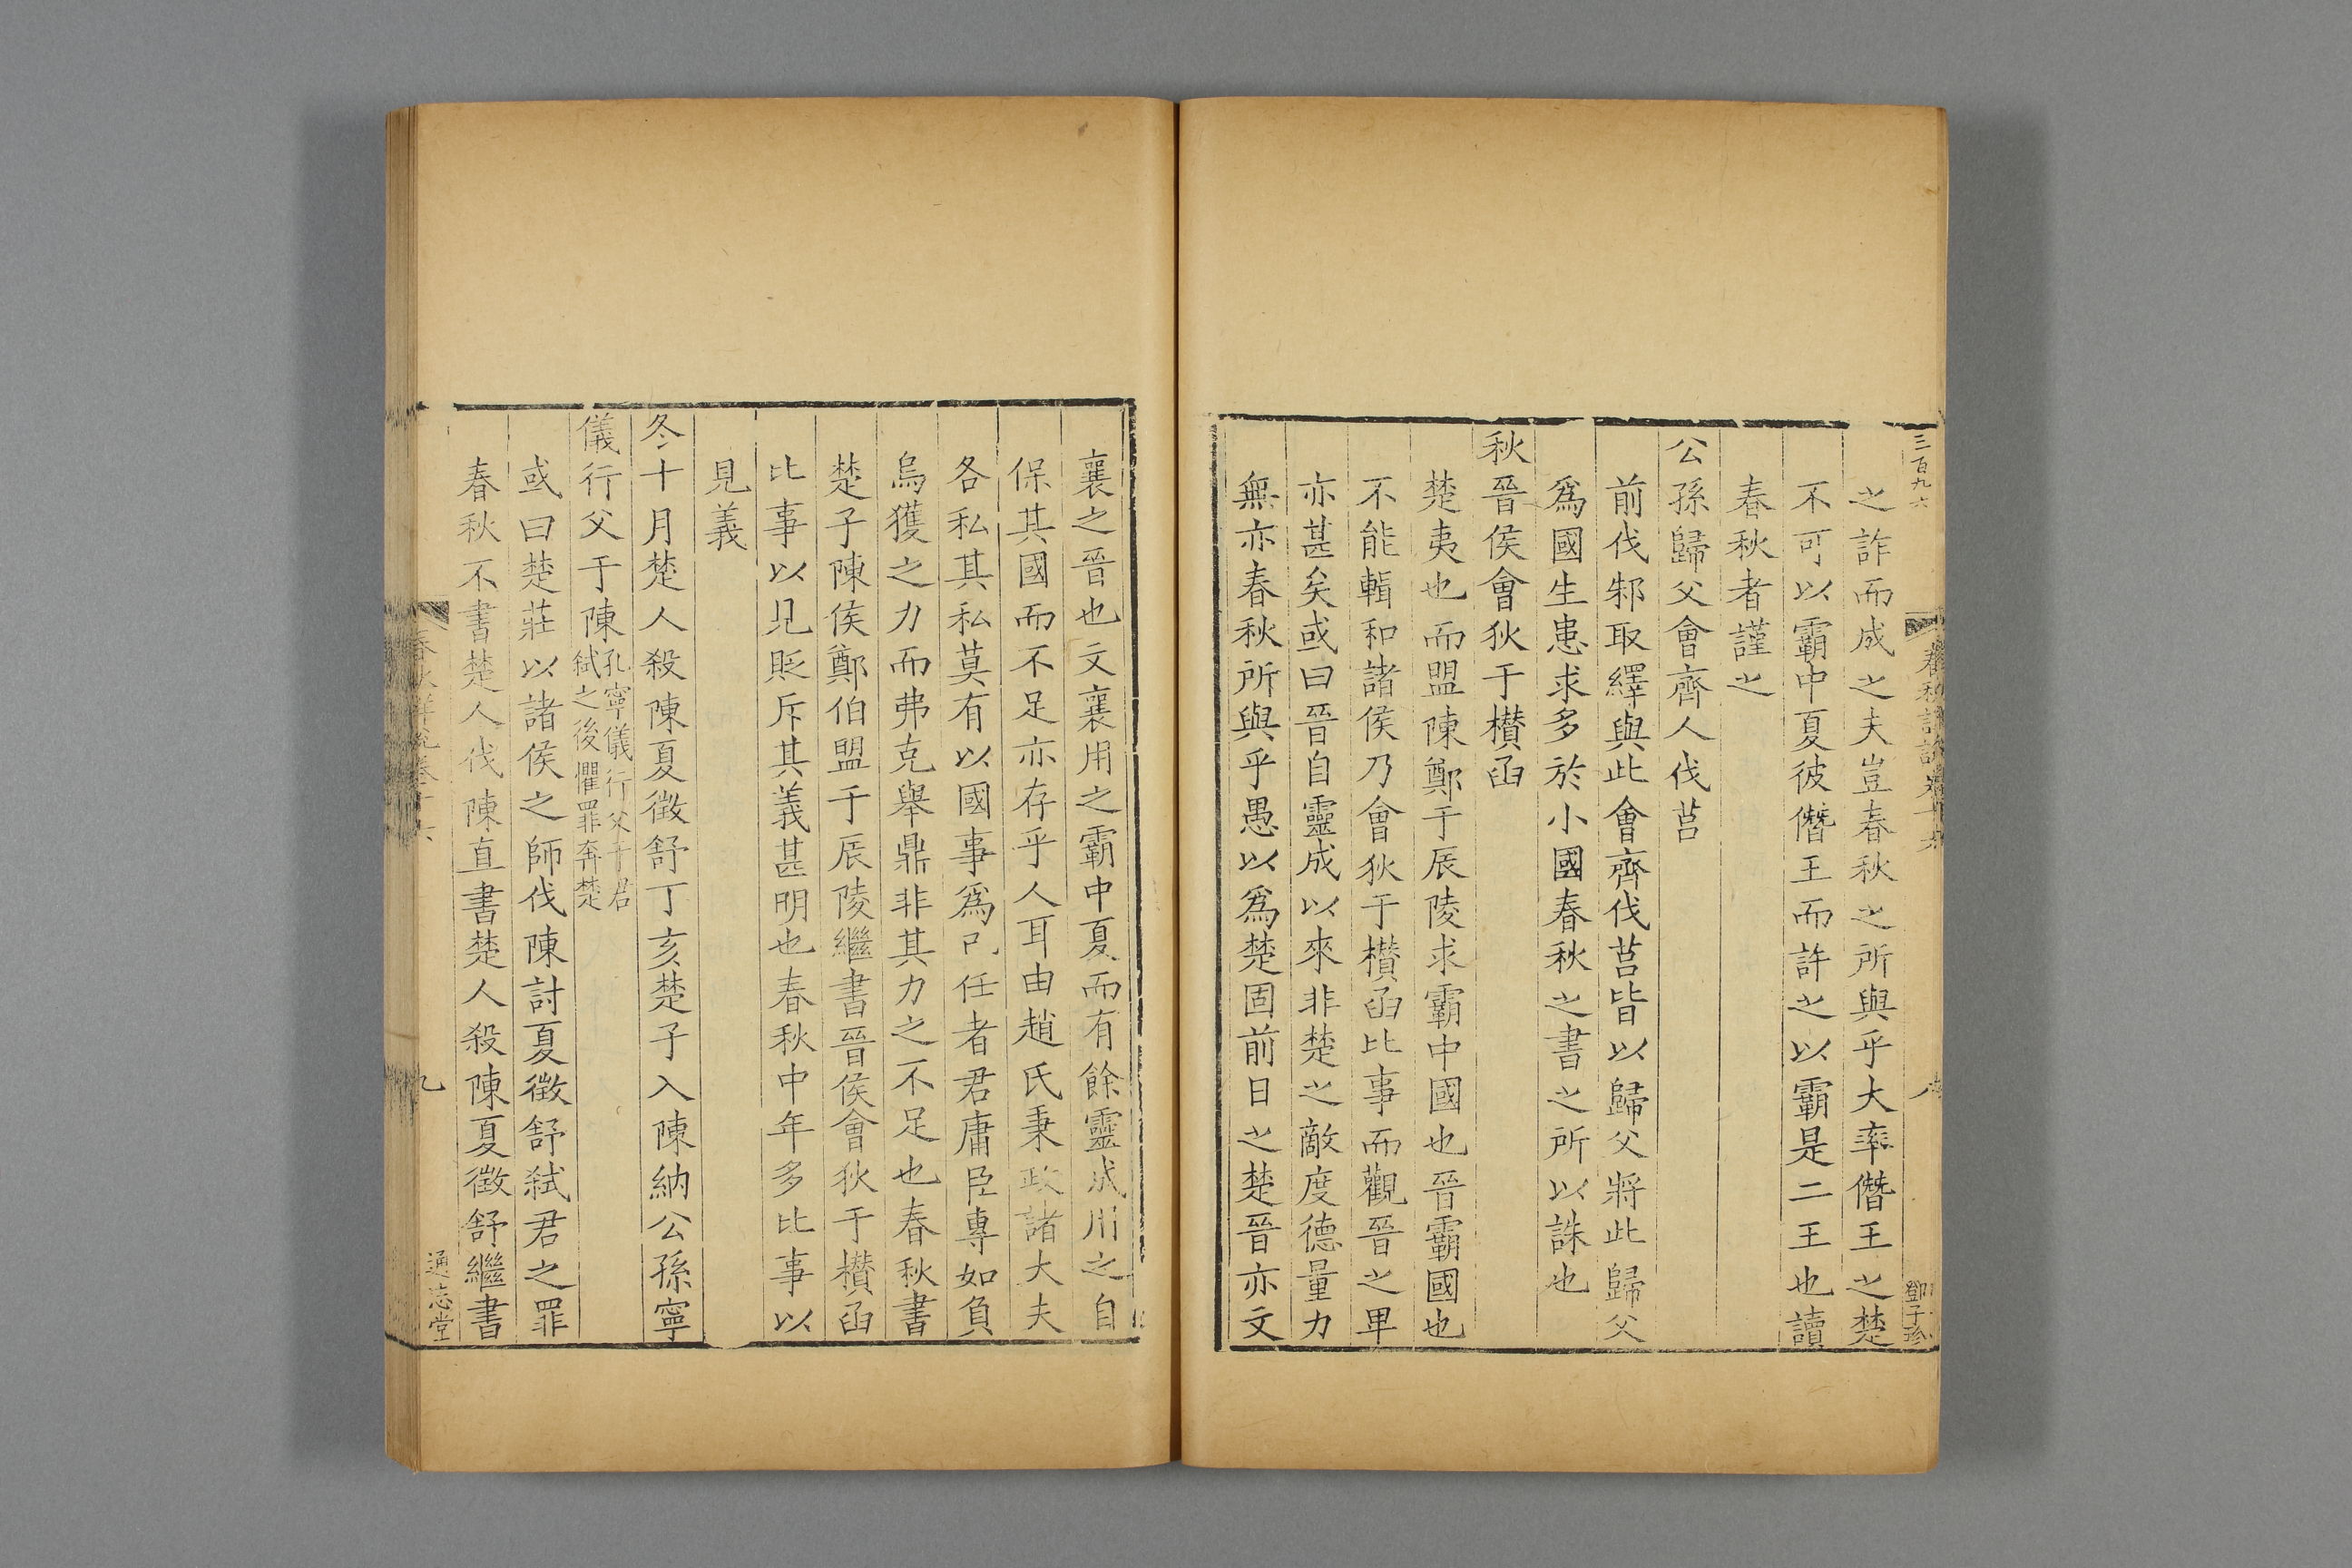 三百九六
之詐而成之夫豈春秋之所與乎大率僭王之楚
不可以霸中夏彼僭王而許之以霸是二王也讀
春秋者謹之
公孫歸父會齊人伐莒
前伐邾取繹與此會齊伐莒皆以歸父將此歸父
爲國生患求多於小國春秋之書之所以誅也
秋晉侯會狄于欑函
楚夷也而盟陳鄭于辰陵求霸中國也晉霸國也
不能輯和諸侯乃會狄于欑函比事而觀晉之畢
亦甚矣或曰晉自靈成以來非楚之敵度德量力
無亦春秋所與乎愚以爲楚固前日之楚晉亦文
鄧子珍
襄之晉也文襄用之霸中夏而有餘靈成用之自
保其國而不足亦存乎人耳由趙氏秉政諸大夫
各私其私莫有以國事爲己任者君庸臣專如負
烏獲之力而弗克舉鼎非其力之不足也春秋書
楚子陳侯鄭伯盟于辰陵繼書晉侯會狄于欑函
比事以見貶斥其義甚明也春秋中年多比事以
見義
冬十月楚人殺陳夏徵舒丁亥楚子入陳納公孫寧
儀行父于陳
孔寧儀行父于君
弑之後懼罪奔楚
或曰楚莊以諸侯之師伐陳討夏徵舒弑君之罪
春秋不書楚人伐陳直書楚人殺陳夏徵舒繼書
九
通志堂